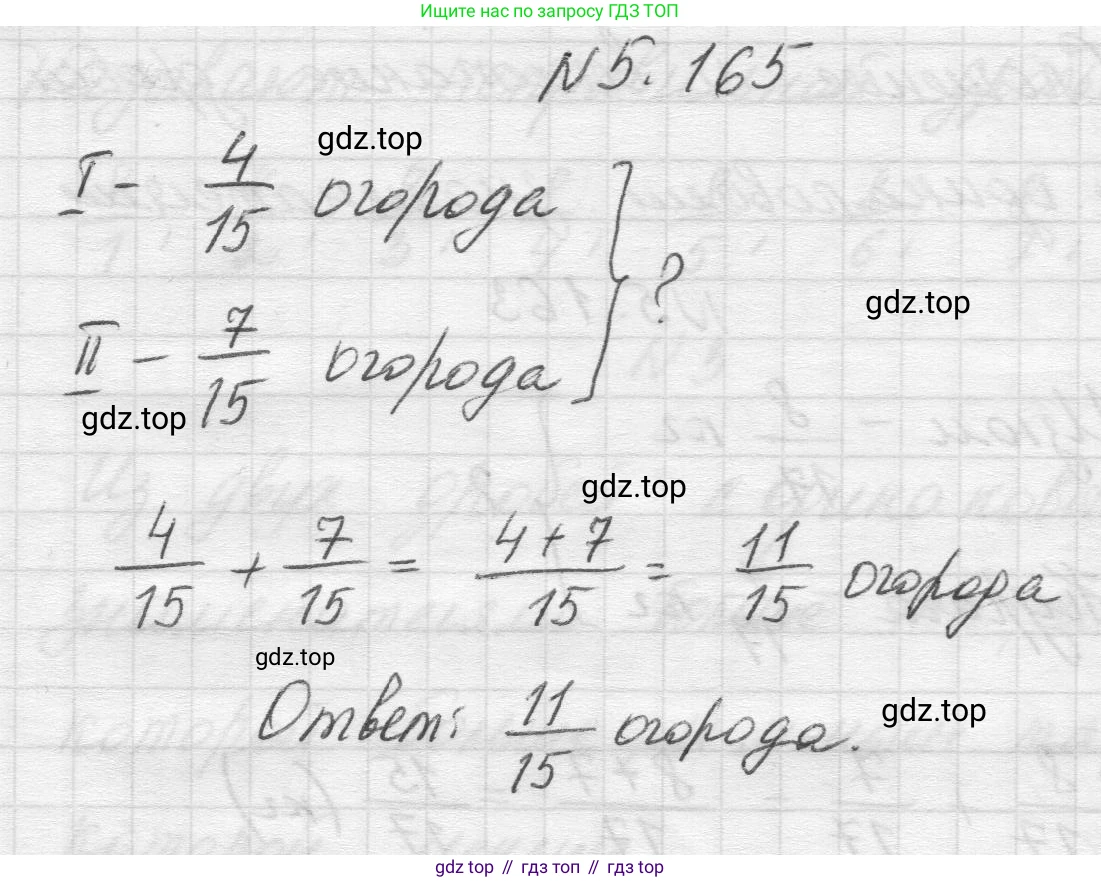 Ищите нас по запросу ГДЗ ТОП
N5.165
gdz.top
I - 4/15 огорода
} ?
gdz.top
II - 7/15 огорода
gdz.top
gdz.top
4/15 + 7/15 = 4+7/15 = 11/15 огорода
gdz.top
Ответ: 11/15 огорода.
gdz.top
gdz top // гдз топ // гдз top